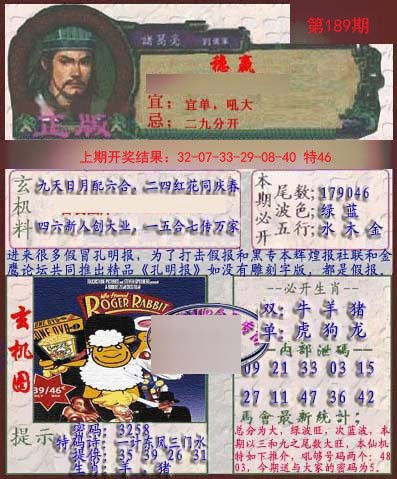 第189期
諸葛亮 劉備軍
稳赢
宜：宜单，吼大
忌：二九分开
正版
上期开奖结果：32-07-33-29-08-40 特46
玄机料
九天日月配六合。二四红花同庆春
四六新人创大业，一五合七传万家
本期必开
尾数;179046
波色;绿 蓝
五行;水 木 金
进来很多假冒孔明报，为了打击假报和黑专本辉煌报社联和金
鹰论坛共同推出精品《孔明报》如没有雕刻字版，都是假报。
玄机图
ROGER RABBIT
39/46
--必开生肖--
双: 牛 羊 猪
单: 虎 狗 龙
--内部泄码--
09 21 33 03 15
27 11 47 36 42
马會最新統计:
总分为大，绿波旺，次蓝波，本
期以三和九之尾数大旺，本仙机
特如下推介，吼够号码两个: 48
03，今期送与大家的密码为5.
提示
密码: 3258
特码诗: 一计东风三门水
提供: 35 39 26 31
生肖: 羊. 猪